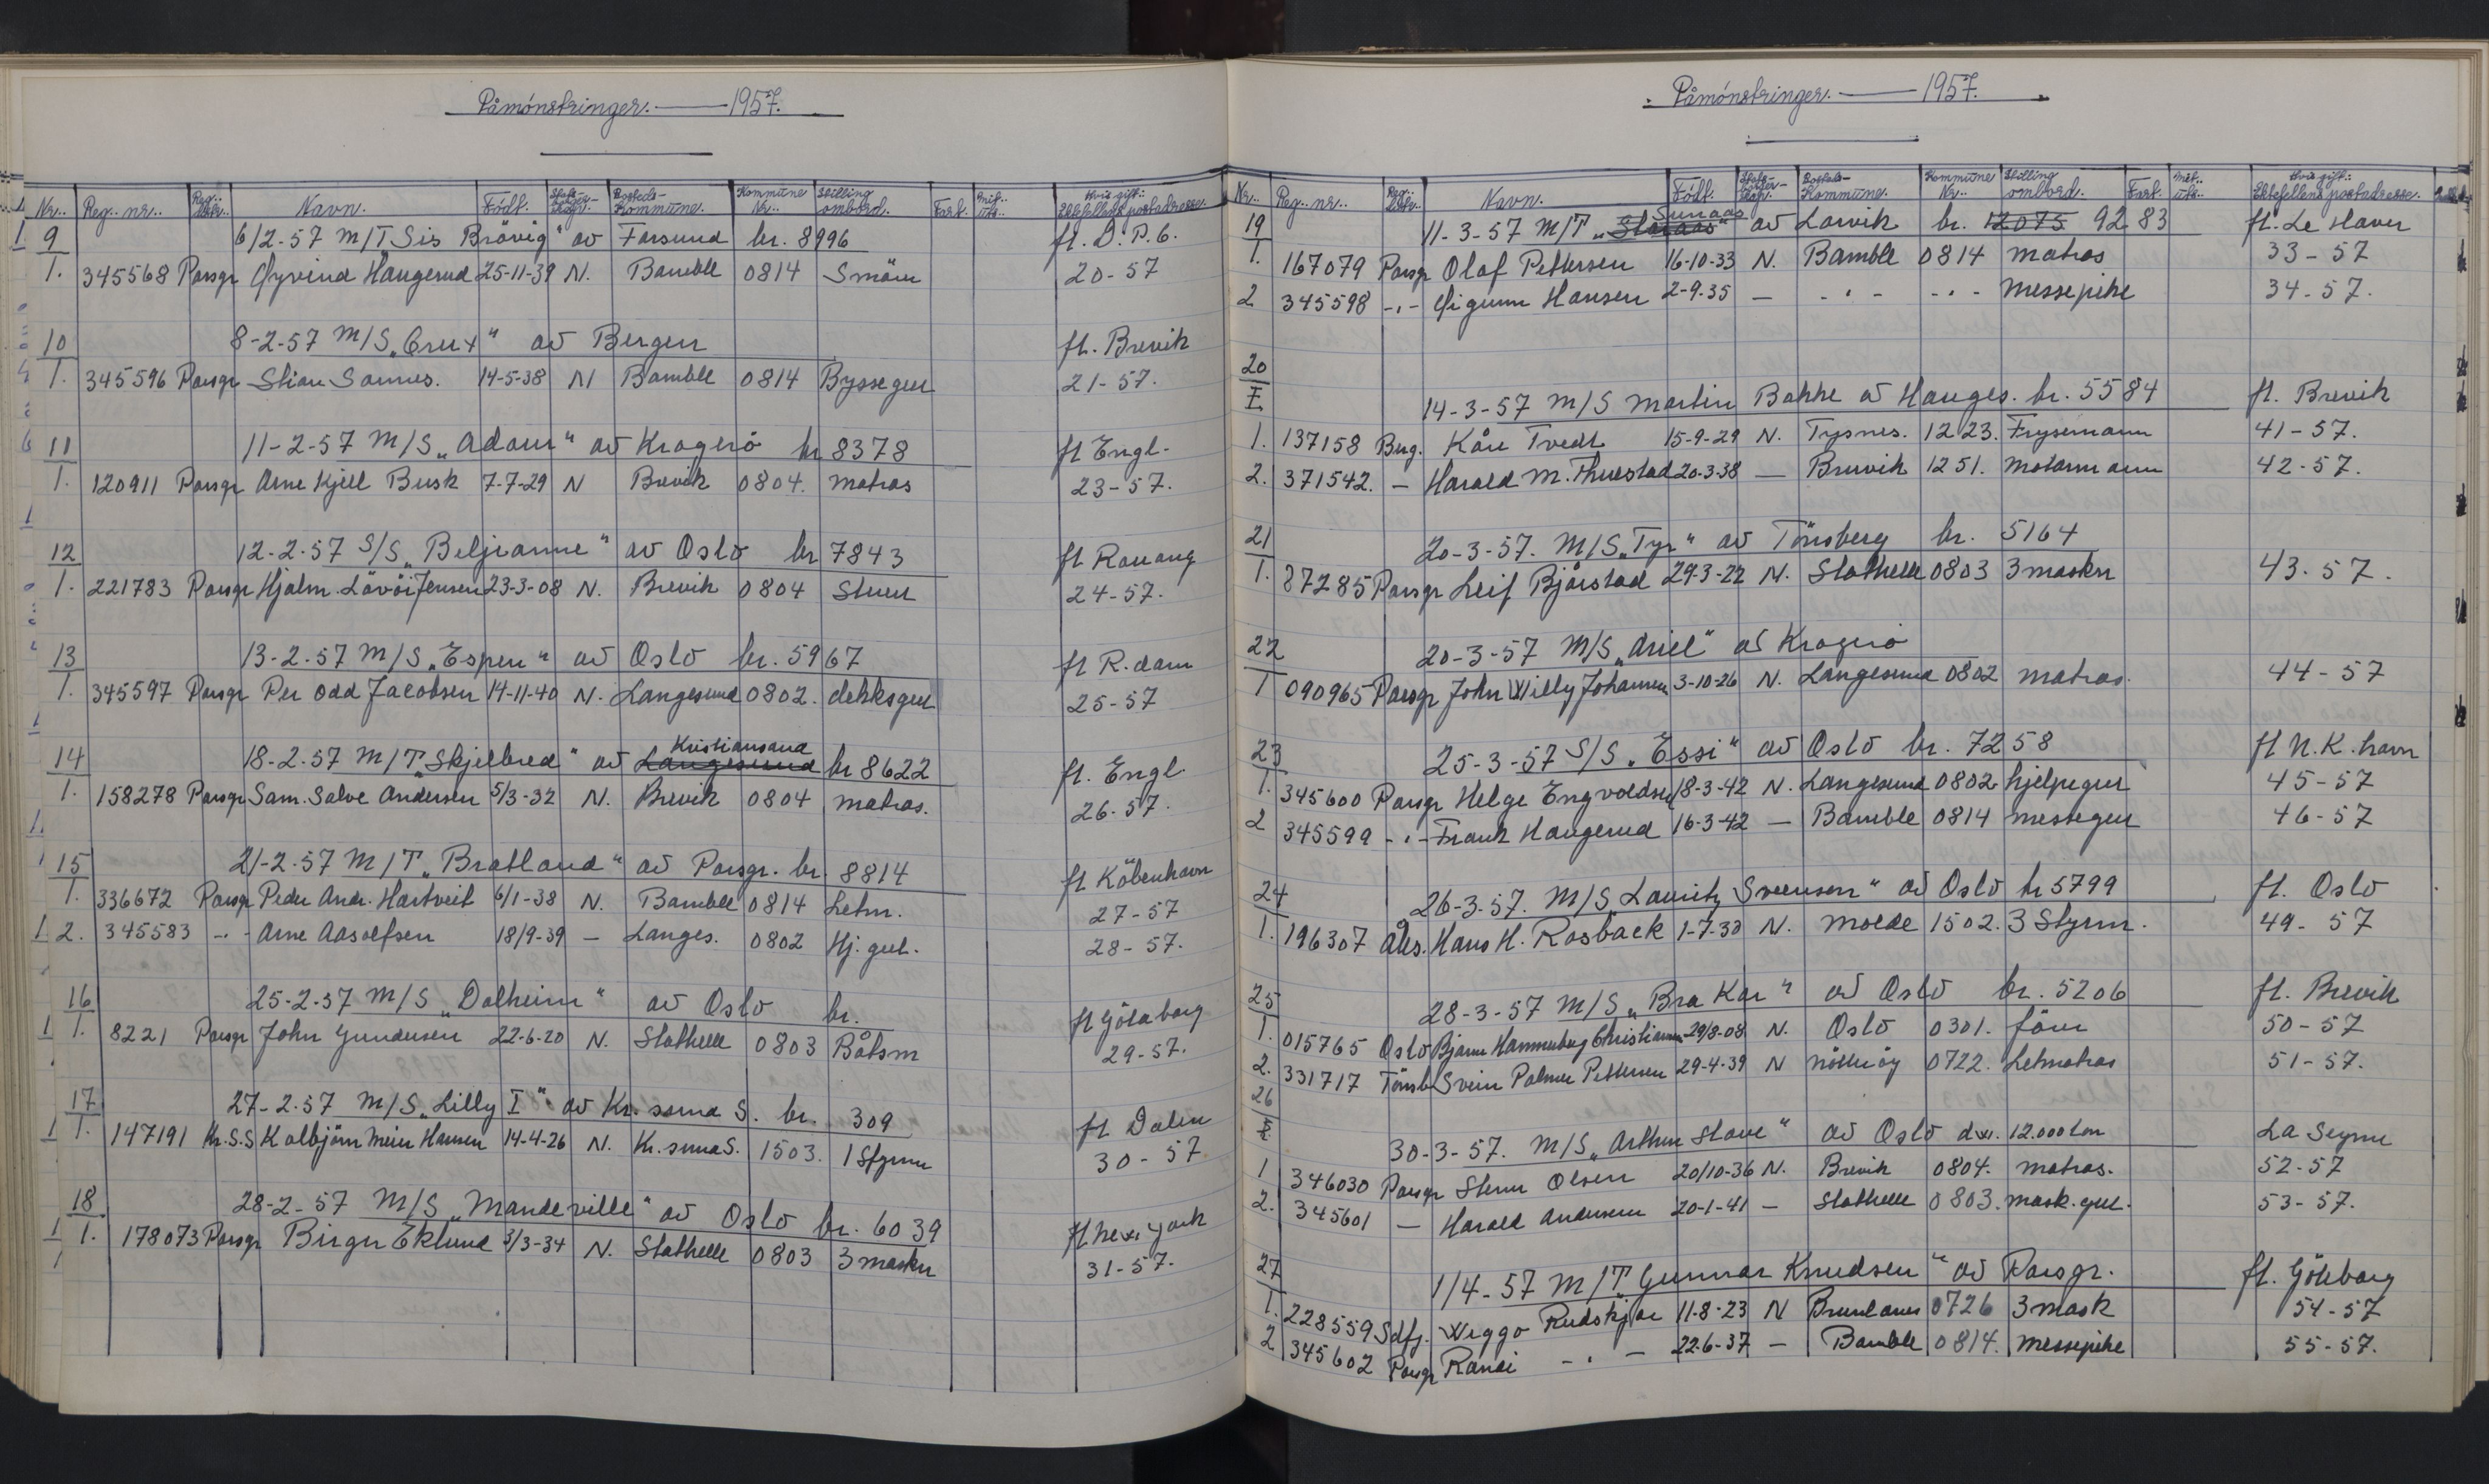 Påmönstringer. — 1957.
Nr.. Reg. nr.. Reg.. distr.. Navn. Födt. Stats-borger-skap. Bosteds-Kommune. Kommune Nr.. Stilling ombord. Fart. Mil.. uts.. Hvis gift: Ektefellens postadresse.
9 6/2-57 M/T Sis Brövig" av Farsund br. 8996 fl. D.P.G.
1. 345568 Porsgr Øyvind Haugerud 25-11-39 N. Bamble 0814 Smörer 20-57
10 8-2-57 M/S „Crux" av Bergen fl. Brevik
1. 345596 Porsgr Stian Sannes. 14-5-38 N Bamble 0814 Byssegut 21-57.
11 11-2-57 M/S „Adam" av Kragerö br 8378 fl Engl.
1. 120911 Porsgr Arne Kjell Busk 7-7-29 N Brevik 0804. matros 23-57.
12 12-2-57 S/S „Beljeanne" av Oslo br 7843 fl Rouang
1. 221783 Porsgr Hjalm. Lövöi Jensen 23-3-08 N. Brevik 0804 Stuert 24-57.
13 13-2-57 M/S „Espen" av Oslo br. 5967 fl R.dam
1. 345597 Porsgr Per Odd Jacobsen 14-11-40 N. Langesund 0802. dekksgut 25-57
14 18-2-57 M/T „Skjelbred" av Langesund Kristiansand br 8622 fl. Engl.
1. 158278 Porsgr Sam. Salve Andersen 5/3-32 N. Brevik 0804 matros. 26-57.
15 21-2-57 M/T „Bratland" av Porsgr. br. 8814 fl Köbenhavn
1. 336672 Porsgr Peder Andr. Hartveit 6/1-38 N. Bamble 0814 Letm. 27-57
2. 345583 -"- Arne Aasolfsen 18/9-39 — Langes. 0802 Hj. gut. 28-57.
16 25-2-57 M/S „Dalheim" av Oslo br. fl Göteborg
1. 8221 Porsgr John Gundersen 22-6-20 N. Stathelle 0803 Båtsm 29-57.
17 27-2-57 M/S „Lilly I" av Kr. sund S. br. 309 fl Dalen
1. 147191 Kr.S.S Kolbjörn Meier Hansen 14-4-26 N. Kr.sund S. 1503. 1 Styrm 30-57
18. 28-2-57 M/S „Mandeville" av Oslo br. 6039 fl New York
1. 178073 Porsgr Birger Eklund 3/3-34 N. Stathelle 0803 3 maskn 31-57.
Påmönstringer. — 1957.
Nr.. Reg. nr.. Reg.. distr.. Navn. Födt. Stats-borger-skap. Bosteds-Kommune. Kommune Nr.. Stilling ombord. Fart. Mil.. uts.. Hvis gift: Ektefellens postadresse.
19 11-3-57 M/T „Storaas" Sunaas av Larvik br. 12075 9283 fl. Le Haver
1. 167079 Porsgr Olaf Pettersen 16-10-33 N. Bamble 0814 matros 33-57
2 345598 -"- Hansen 2-9-35 — -"- -"- Messepike 34-57.
20
I. 14-3-57 M/S Martin Bakke av Hauges. br. 5584 fl. Brevik
1. 137158 Berg. Kåre Tvedt 15-9-29 N. Tysnes. 1223. Frysemann 41-57.
2. 371542. — Harald M. Thuestad 20-3-38 — Bruvik 1251. Motormann 42-57.
21 20-3-57. M/S „Tyr" av Tönsberg br. 5164
1. 87285 Porsgr Leif Bjårstad 29-3-22 N. Stathelle 0803 3 maskn 43-57.
22 20-3-57 M/S „Ariel" av Kragerö
1 090965 Porsgr John Willy Johansen 3-10-26 N. Langesund 0802 matros. 44-57
23 25-3-57 S/S „Essi" av Oslo br. 7258 fl N.K. havn
1. 345600 Porsgr Helge Engvoldsen 18-3-42 N. Langesund 0802 hjelpegut 45-57
2 345599 -"- Frank Haugerud 16-3-42 — Bamble 0814 messegut 46-57
24 26-3-57. M/S Lauritz Svensen" av Oslo br 5799 fl. Oslo
1. 196307 Ales. Hans H. Rosbäck 1-7-30 N. Molde 1502. 3 Styrm. 49-57
25 28-3-57 M/S „Bra Kar" av Oslo br. 5206 fl. Brevik
1. 015765 Oslo Bjarne Hammerborg Christiansen 29/8-08 N. Oslo 0301. förer 50-57
2. 331717 Tönsb Svein Palmer Pettersen 29-4-39 N Nötteröy 0722. Letmatros 51-57.
26
I. 30-3-57. M/S „Arthur Stove" av Oslo dw. 12.000 ton La Seyne
1 346030 Porsgr Olsen 20/10-36 N. Brevik 0804. matros. 52-57
2. 345601 — Harald Andersen 20-1-41 — Stathelle 0803. mask. gut. 53-57.
27 1/4-57 M/T „Gunnar Knudsen" av Porsgr. fl. Göteborg
1. 228559 Sdfj. Weggo Rudskjær 11-8-23 N Brunlanes 0726 3 mask 54-57
2 345602 Porsgr Randi -"- 22-6-37 — Bamble 0814. Messepike 55-57.